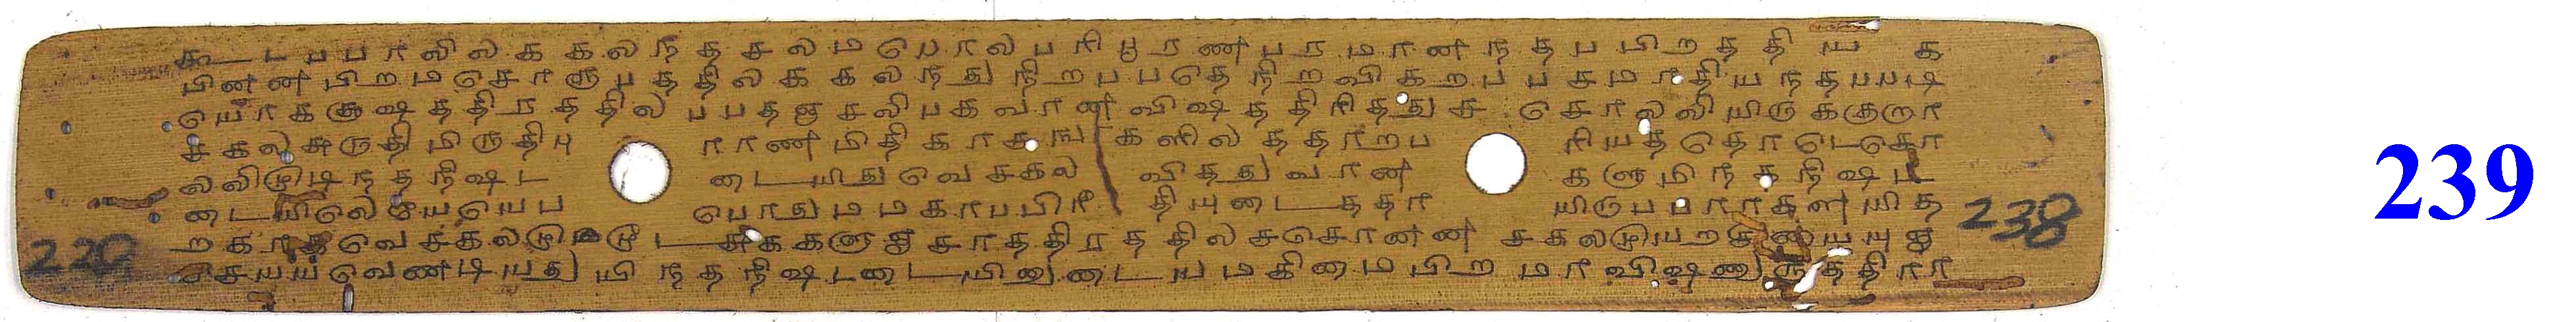 கூடடபபாலிலககலநதசலமபொலபரிபூரணபரமானநதபபிறததியக
பினனபிறமசொருபததிலககலநதுநிறபபதெநிறவிகறபபசமாதியநதபபடி
யொககூஷததிரததிலபபதஞசலிபகவானவிஷததிரிததுச சொலலியிருககுறா
சகலசுருதிமிருதிபு ராணமிதிகாசஙகளிலததாறப ரியததொடெகொ
லலிடுடிநதநிஷட டையிதுவெசகல விததுவான களுமிநதநிஷட
டையிலெயேயெப பொதுமமகாபபிரீ தியுடைததா யிருபபாரகளயித
றகாதவெசகலடு சககளுஞசாததிரததிலசசொனன சகலடுயறகி
செயயவெணடியது யிநதநிஷடடையினுடையமகிமைபிற மாவிஷணுருததிரா
220
238
239